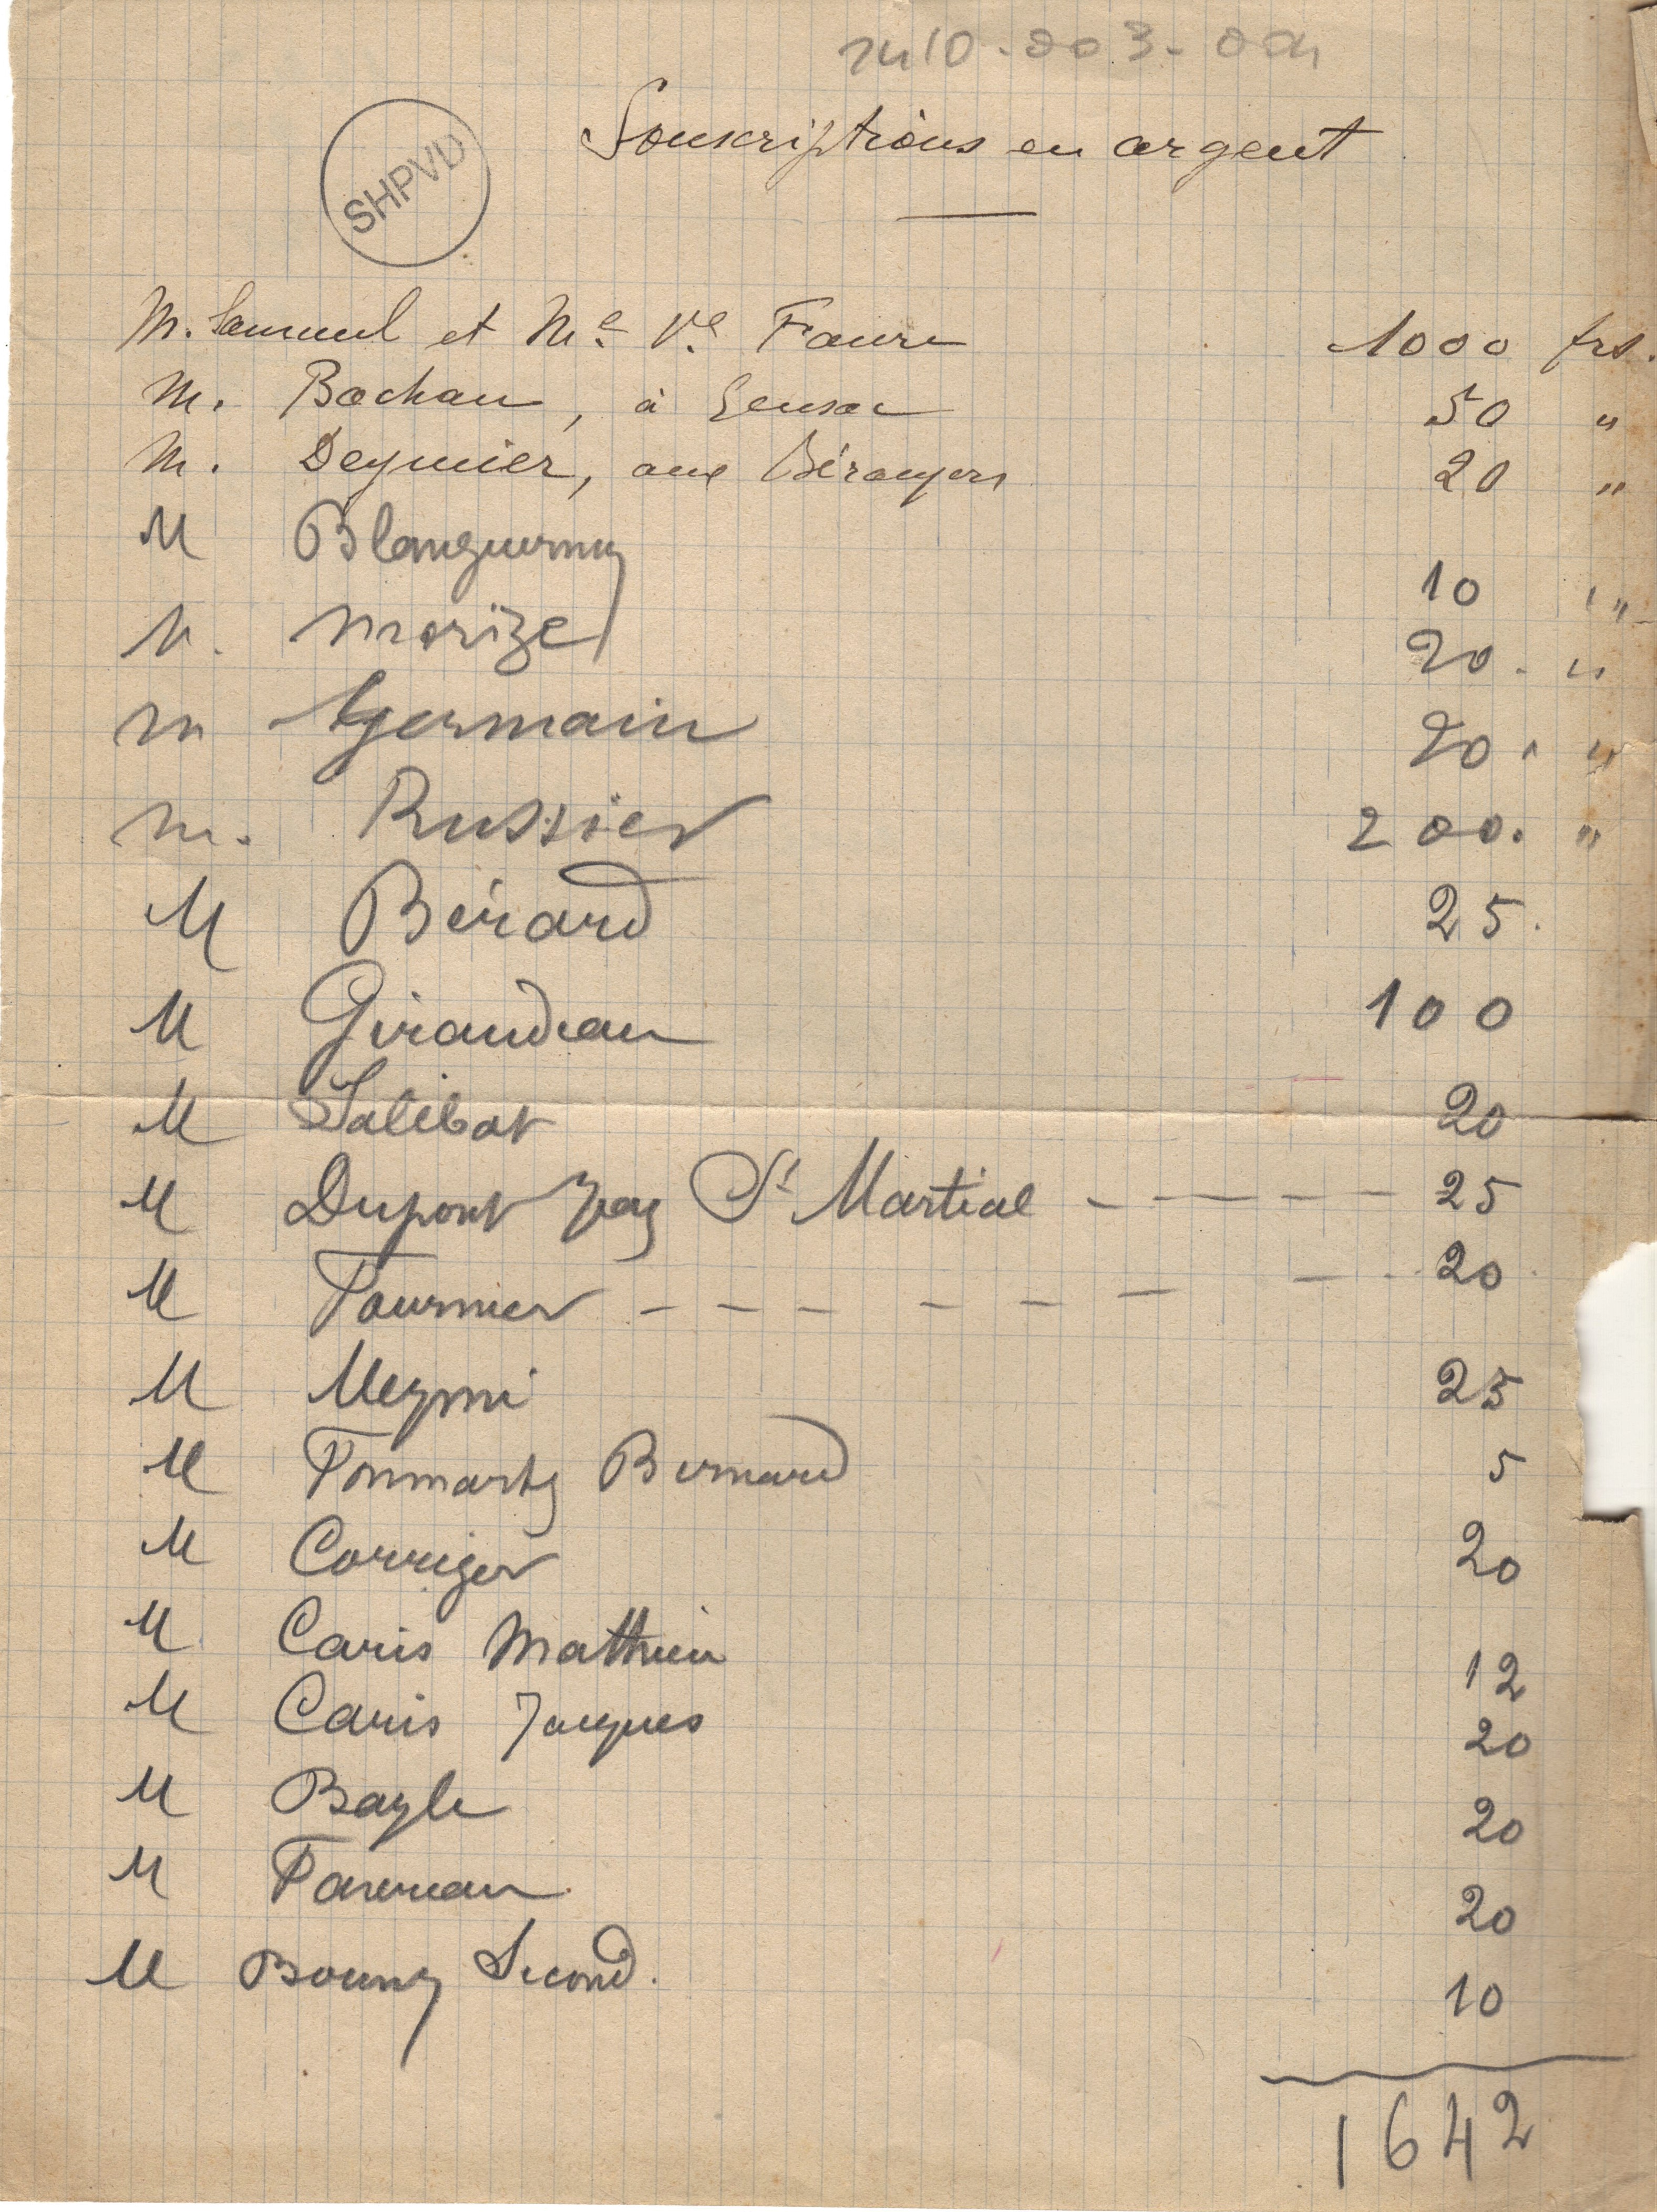 2410-003-004
SHPVD
Souscriptions en argent
M. Samuel et Me Ve Faure 1000 frs.
M. Bachan, à Gensac 50 "
M. Deymier, aux Bérangers 20 "
M Blanguernuy 10 "
M. Morizet 20. "
M Germain 20. "
M. Russier 200. "
M Bérard 25.
M Giraudeau 100
M Salibat 20
M Dupont St Martial - - - - - 25
M Fournier - - - - - - - 20
M Meynie 25
M Bernard 5
M Corriger 20
M Caris Mathieu 12
M Caris Jacques 20
M Bayle 20
M Favereau 20
M Bouny Second. 10
1642